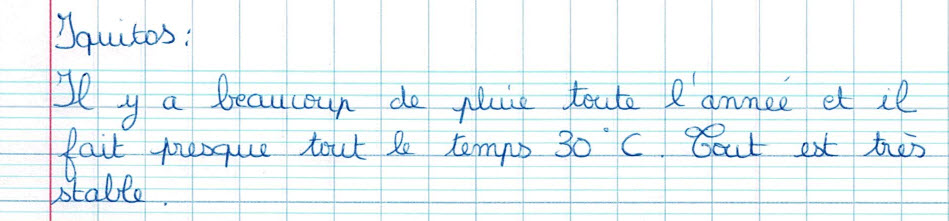 Iquitos:
Il y a beaucoup de pluie toute l'année et il
fait presque tout le temps 30°C. Tout est très
stable.